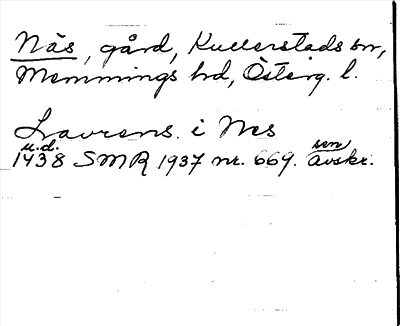 Näs, gård, Kullerstads sn,
Memmings hd, Österg. l.
Lavrens. i Nes
u.d. sen
1438 SMR 1937 nr. 669. avskr.